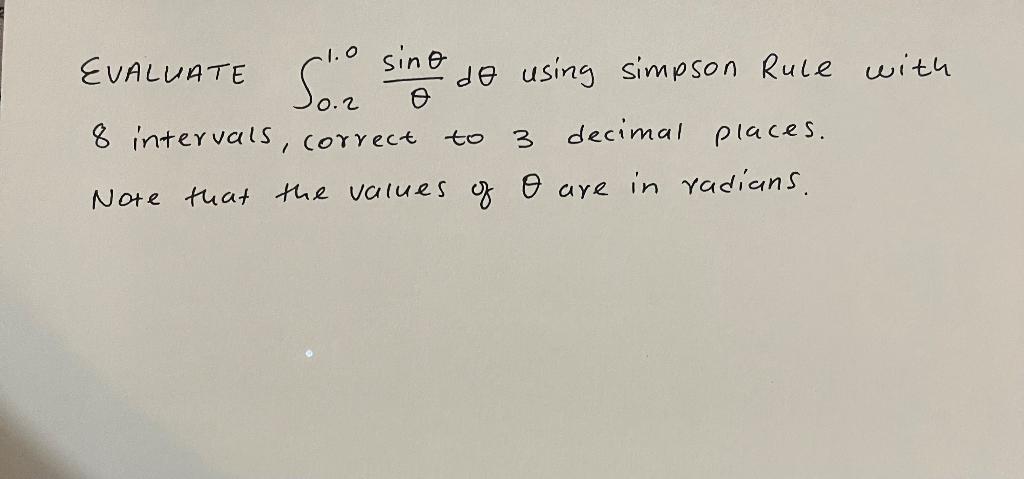 EVALUATE ∫_{0.2}^{1.0} sinθ/θ dθ using simpson Rule with
8 intervals, correct to 3 decimal places.
Note that the values of θ are in radians.